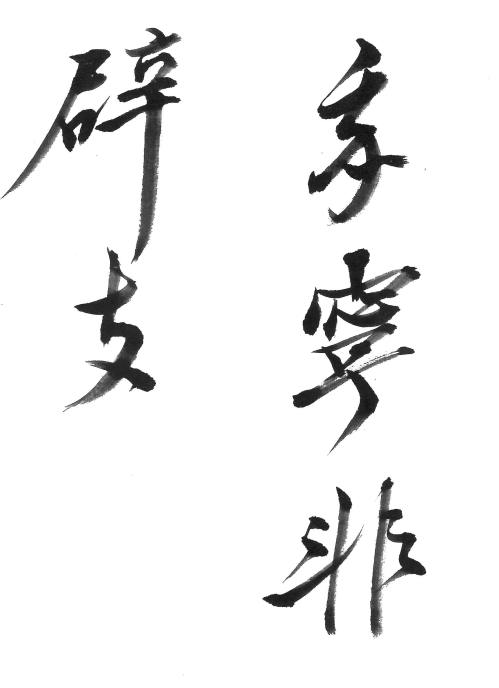 寧非
辟支